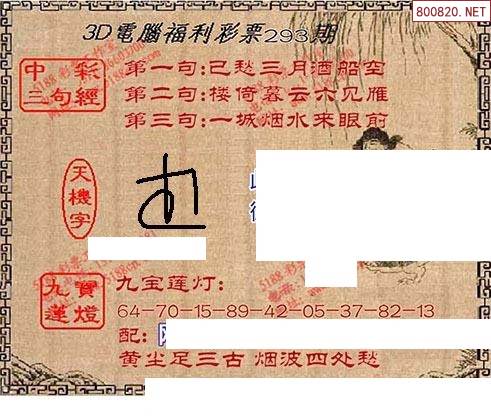 800820.NET
3D電腦福利彩票293期
中彩
三句經
第一句:已愁三月酒船空
第二句:楼倚暮云六见雁
第三句:一城烟水来眼前
天機字
九寶
蓮燈
九宝莲灯:
64-70-15-89-42-05-37-82-13
配:
黄尘足三古 烟波四处愁